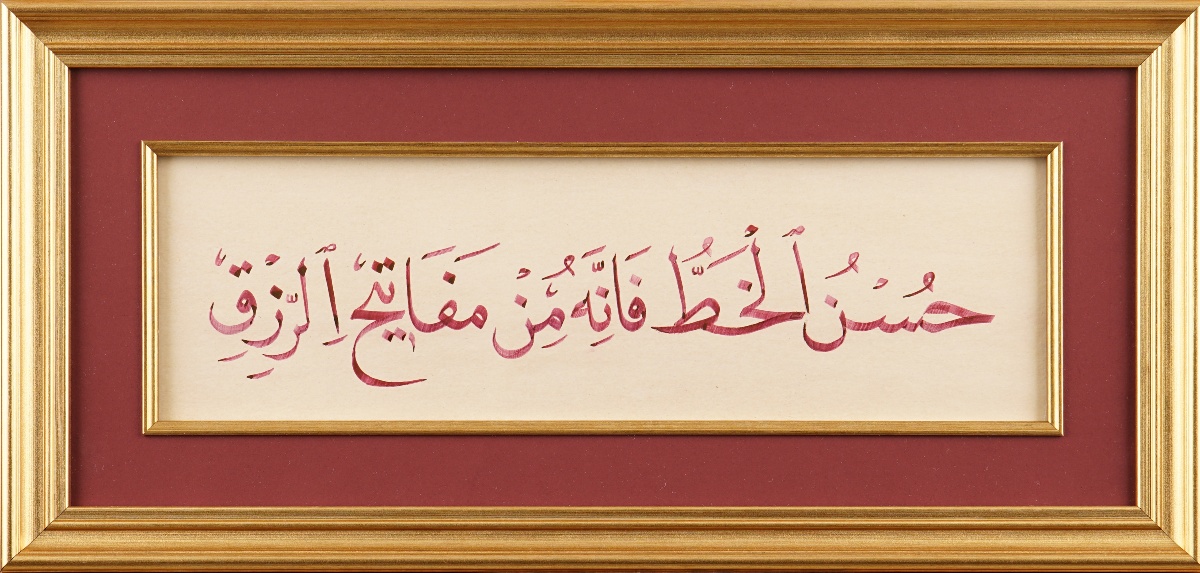 حُسْنُ الْخَطُّ فَاِنَّهُ مِنْ مَفَاتِيحِ الرِّزْقِ